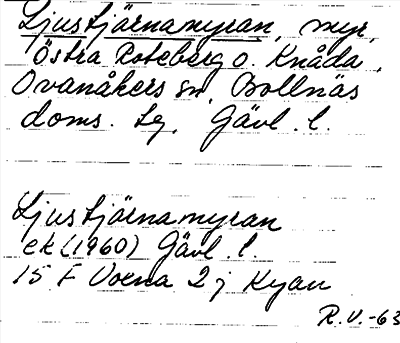 Ljustjärnamyran, myr,
Östra Roteberg o. Knåda,
Ovanåkers sn, Bollnäs
doms. tg, Gävl. l.
Ljustjärnamyran
ek (1960) Gävl. l.
15 F Voxna 2 j Kyan
R.V.-63